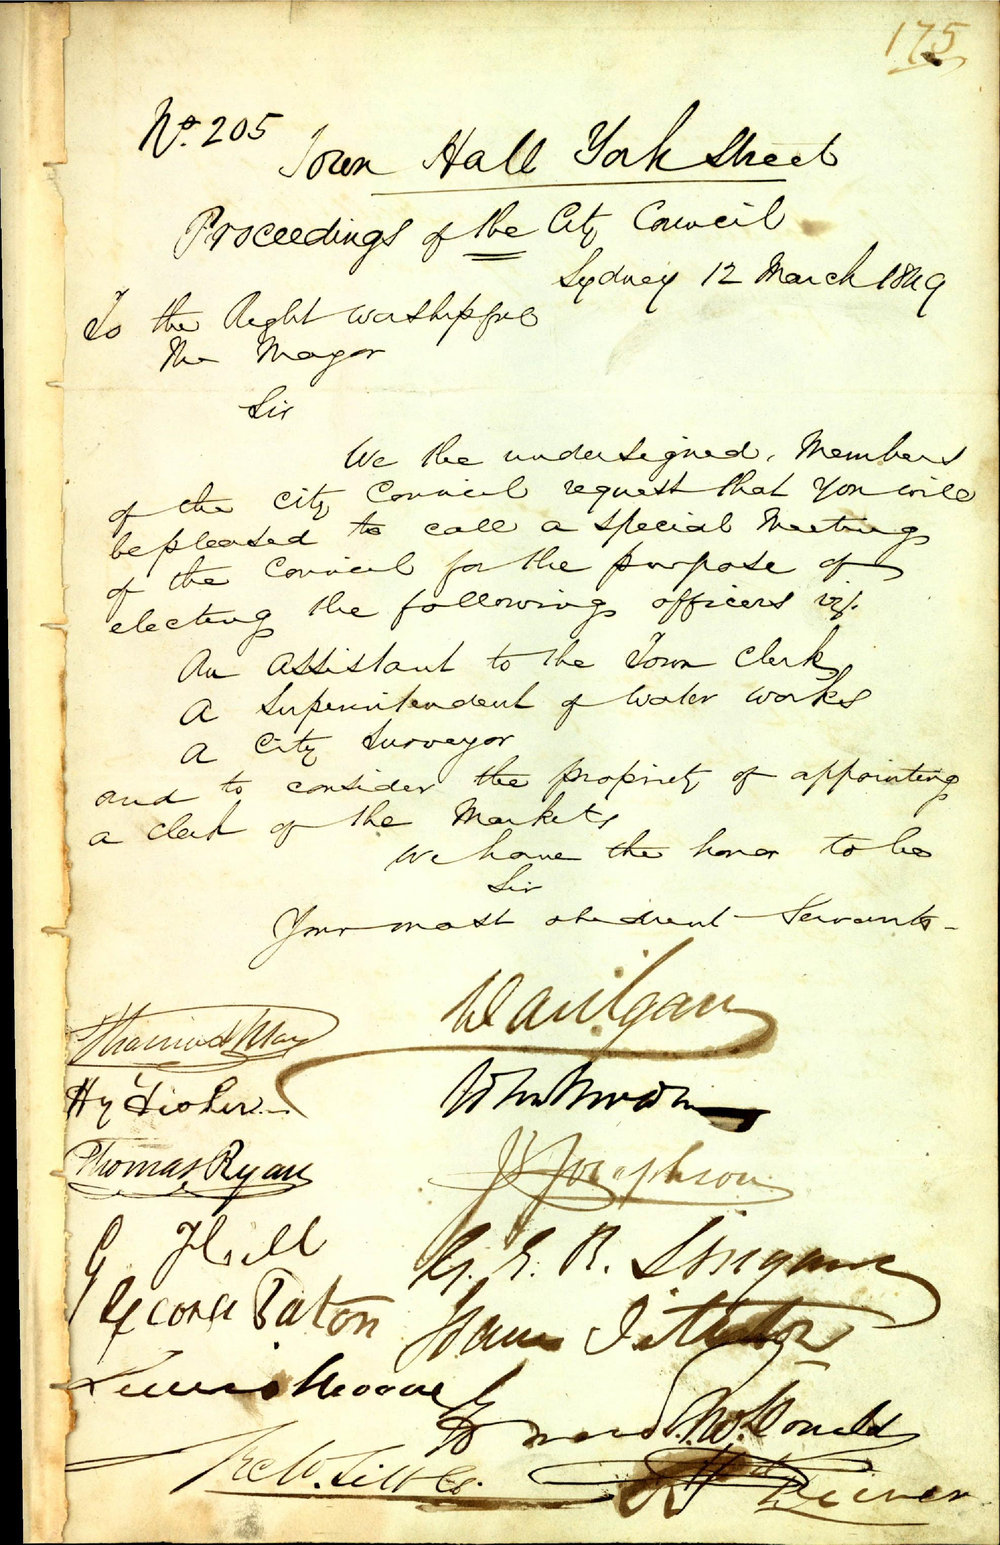 175
No. 205
Town Hall York Street
Proceedings of the City Council
Sydney 12 March 1849
To the Right Worshipful
The Mayor
Sir
We the undersigned, Members
of the City Council request that you will
be pleased to call a special Meeting
of the Council for the purpose of
electing the following officers viz.
An Assistant to the Town Clerk
A Superintendent of Water Works
A City Surveyor
and to consider the propriety of appointing
a clerk of the Markets
We have the honor to be
Sir
Your most obedient Servants
Hy Fisher
Thomas Ryan
G Hill
George Paton
J Josephson
G. E. R.
McDonald